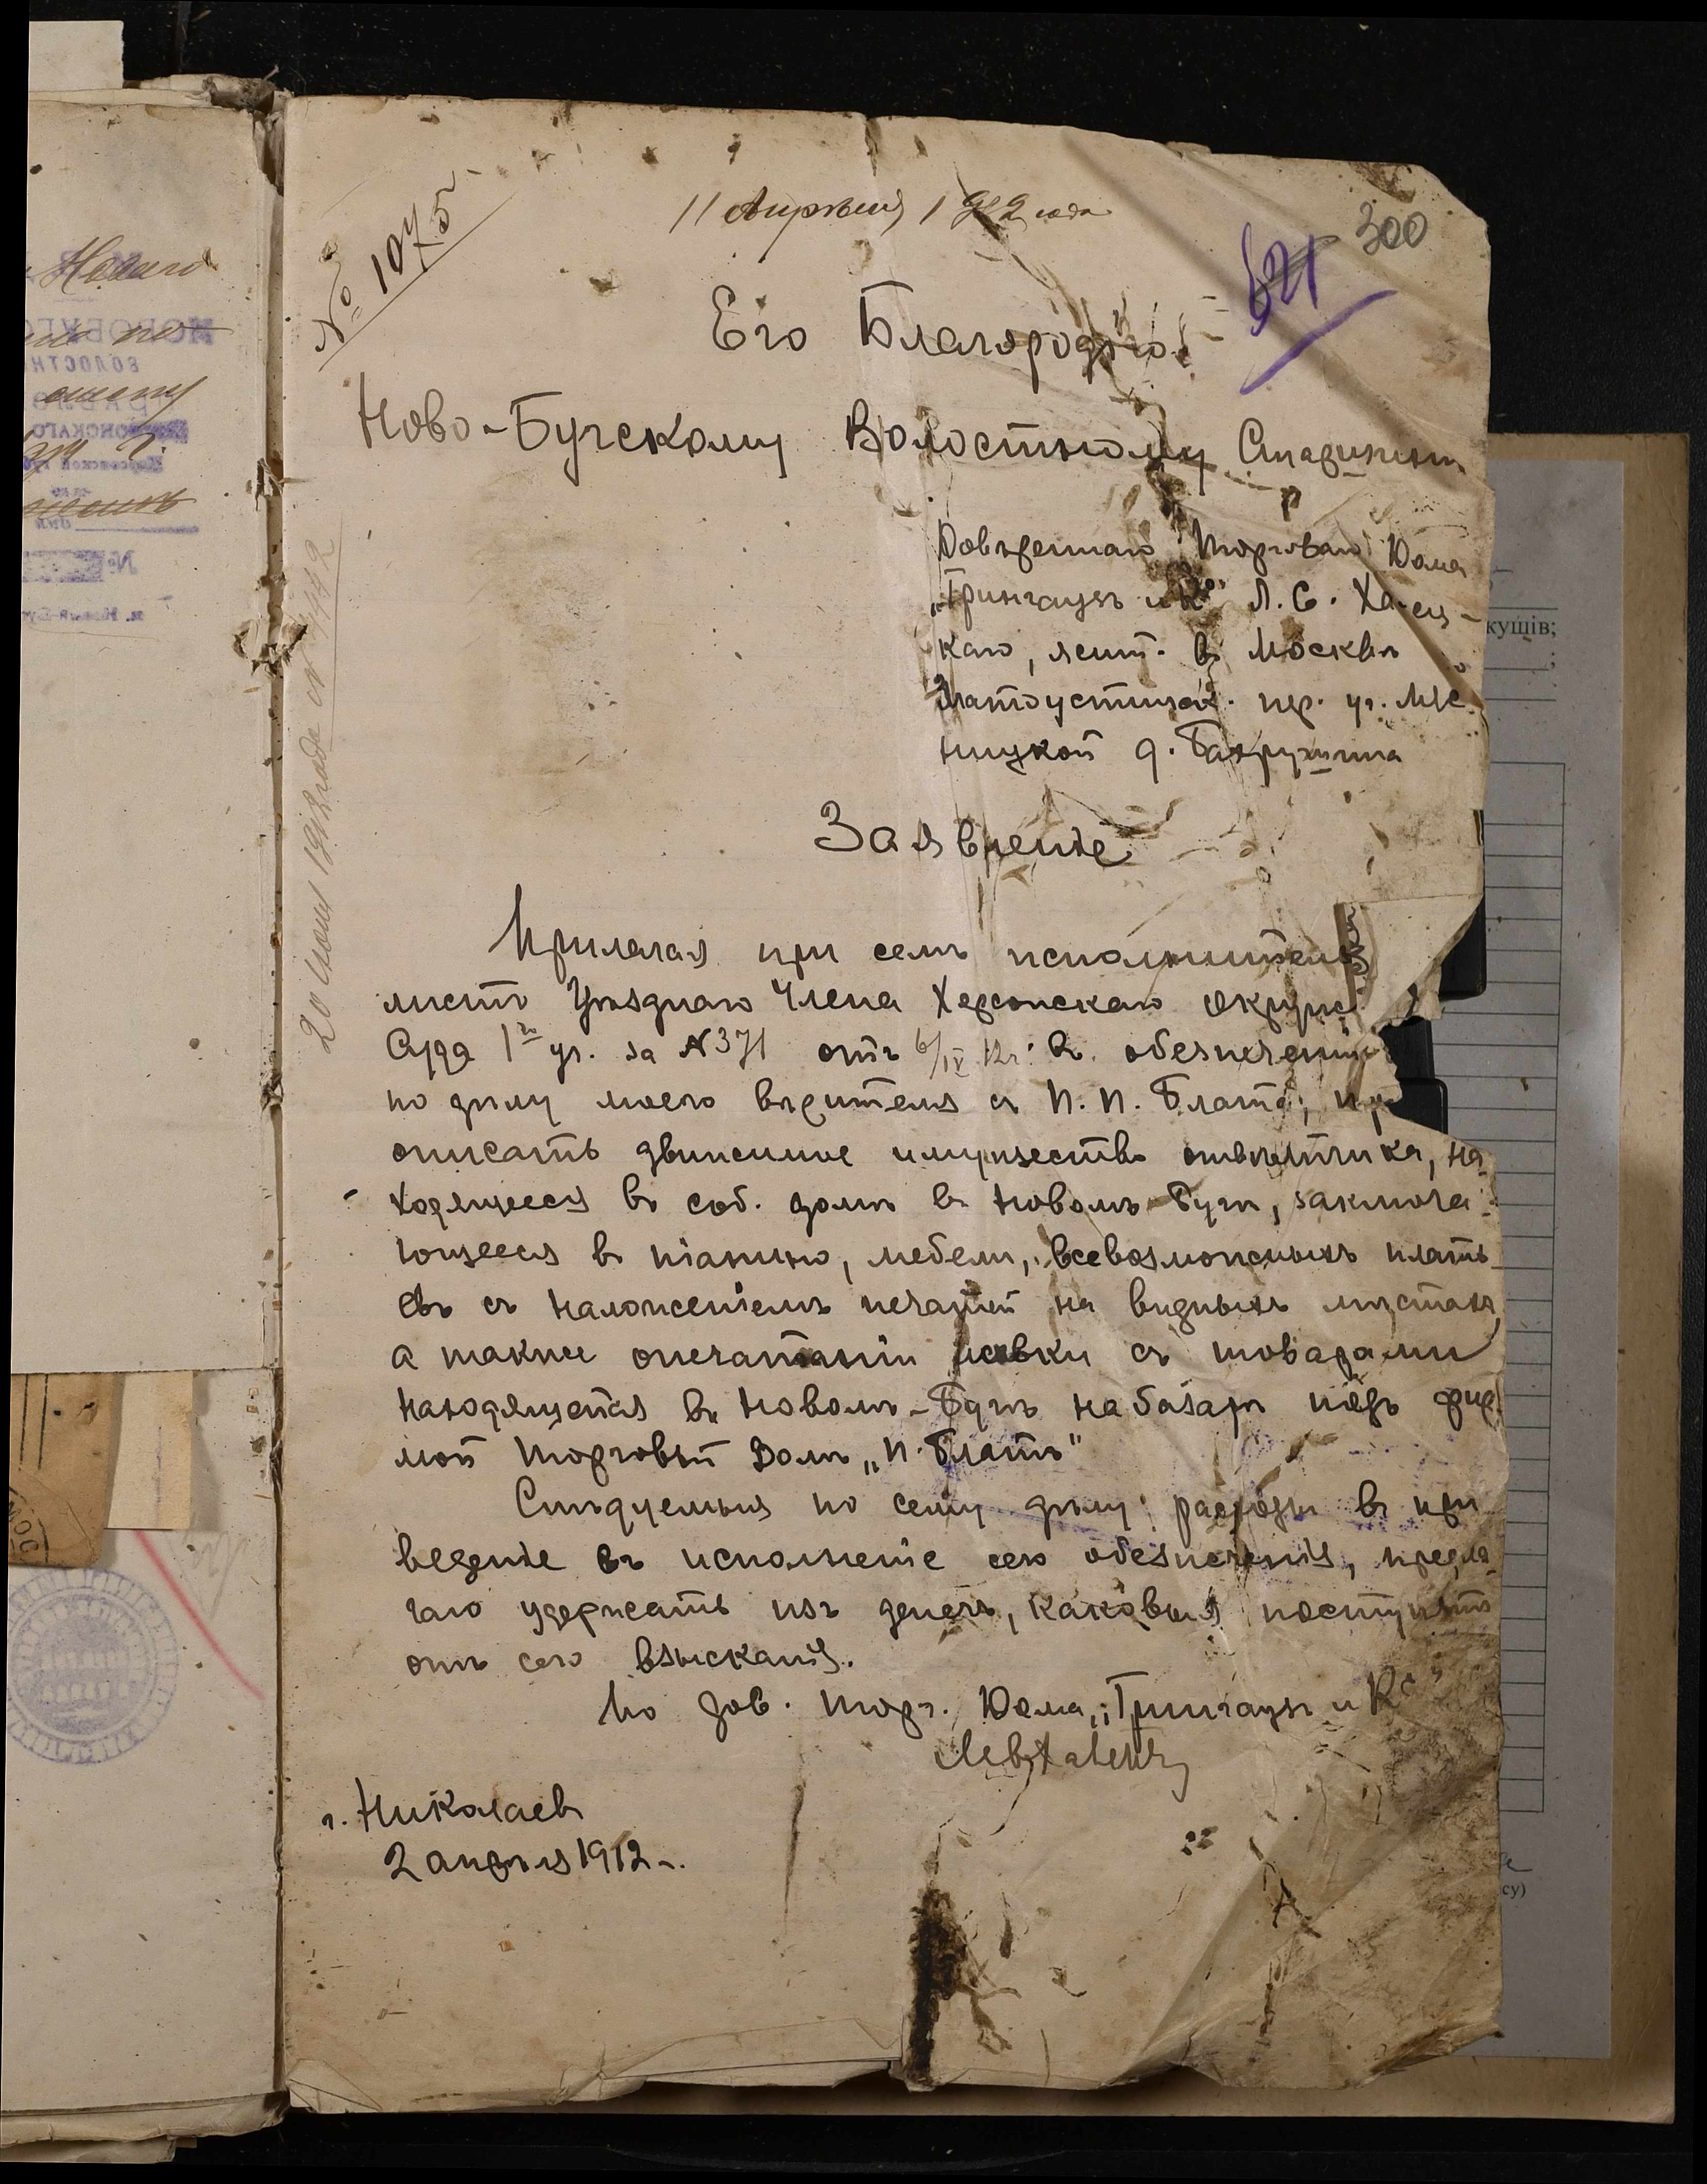 № 1075
11 Апрѣля 1912 года
300
621
Его Благородію
Ново-Бугскому Волостному Старшинѣ
Довѣреннаго Торговаго Дома
„Грингаузъ и Ко" Л. С.
каго, жит. въ Москвѣ
Златоустинск. пер. уг. Мяс
ницкой д. Бахрушина
Заявленіе
Прилагая при семъ исполнительн
листъ Уѣзднаго Члена Херсонскаго Окружн
Суда 1го уч. за №371 отъ 6/IV 12г. въ обезпеченіи
по дѣлу моего вѣрителя съ П. П. Блатъ, пр
описать движимое имущество отвѣтчика, на-
ходящееся въ соб. домѣ въ Новомъ-Бугѣ, заключа-
ющееся въ піанино, мебели, всевозможныхъ плать-
евъ съ наложеніемъ печатей на видныхъ мѣстахъ
а также опечатаніи лавки съ товарами
находящейся въ Новомъ-Бугѣ на базарѣ подъ фир
мой Торговый Домъ „П. Блатъ"
Слѣдуемыя по сему дѣлу расходы въ при
веденіе въ исполненіе сего обезпеченія, предла-
гаю удержать изъ денегъ, каковыя поступятъ
отъ сего взысканія.
По дов. Торг. Дома „Грингаузъ и Ко"
г. Николаевъ
2 апрѣля 1912 г.
20 1912 года № 7442
кущів;
су)